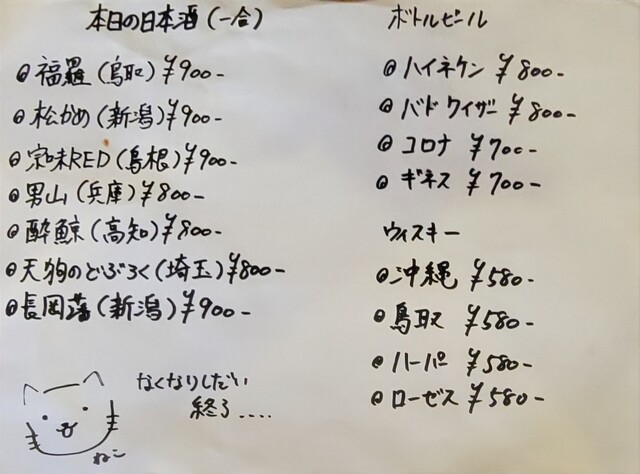 本日の日本酒(一合)
福羅(鳥取)¥900-
松かめ(新潟)¥900-
宗味RED(島根)¥900-
男山(兵庫)¥800-
酔鯨(高知)¥800-
天狗のどぶろく(埼玉)¥800-
長岡藩(新潟)¥900-
なくなりしだい
終了....
ねこ
ボトルビール
ハイネケン ¥800-
バドワイザー ¥800-
コロナ ¥700-
ギネス ¥700-
ウィスキー
沖縄 ¥580-
鳥取 ¥580-
ハーパー ¥580-
ローゼス ¥580-